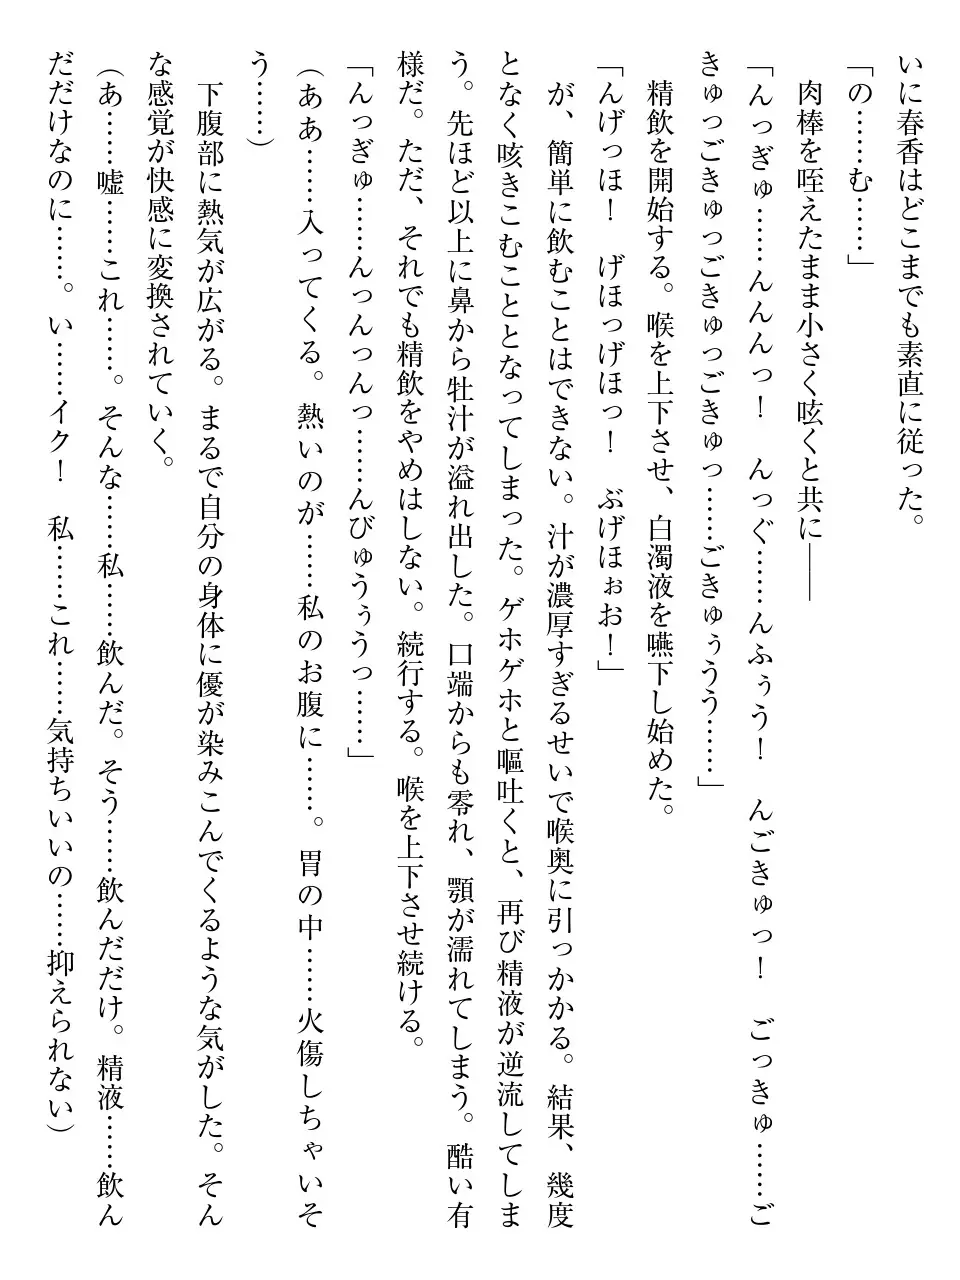 いに春香はどこまでも素直に従った。
「の……む……」
肉棒を咥えたまま小さく呟くと共に――
「んっぎゅ……んんんっ！　んっぐ……んふぅう！　んごきゅっ！　ごっきゅ……ご
きゅっごきゅっごきゅっごきゅっ……ごきゅぅうう……」
精飲を開始する。喉を上下させ、白濁液を嚥下し始めた。
「んげっほ！　げほっげほっ！　ぶげほぉお！」
が、簡単に飲むことはできない。汁が濃厚すぎるせいで喉奥に引っかかる。結果、幾度
となく咳きこむこととなってしまった。ゲホゲホと嘔吐くと、再び精液が逆流してしま
う。先ほど以上に鼻から牡汁が溢れ出した。口端からも零れ、顎が濡れてしまう。酷い有
様だ。ただ、それでも精飲をやめはしない。続行する。喉を上下させ続ける。
「んっぎゅ……んっんっんっ………んびゅうぅうっ……」
（ああ……入ってくる。熱いのが……私のお腹に……。胃の中……火傷しちゃいそ
う……）
下腹部に熱気が広がる。まるで自分の身体に優が染みこんでくるような気がした。そん
な感覚が快感に変換されていく。
（あ……嘘……これ……。そんな……私……飲んだ。そう……飲んだだけ。精液……飲ん
だだけなのに……。い……イク！　私……これ……気持ちいいの……抑えられない）